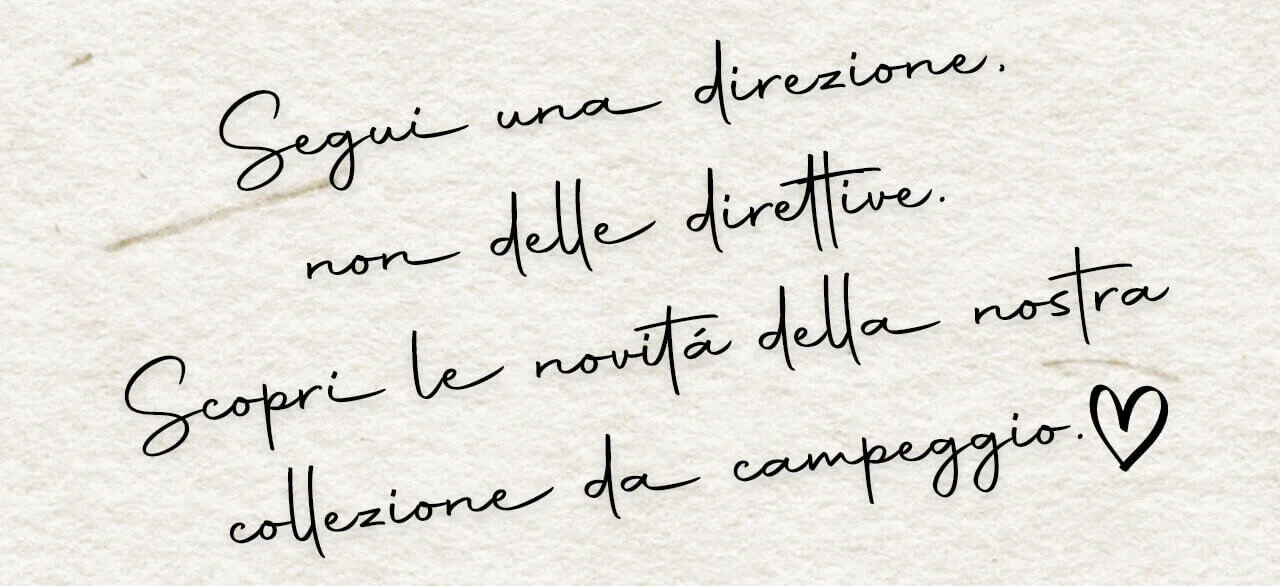 Segui una direzione.
non delle direttive.
Scopri le novitá della nostra
collezione da campeggio.♡